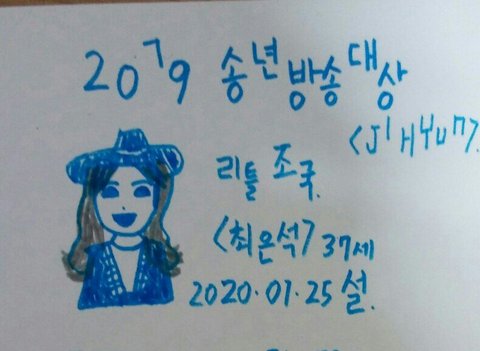 2079 송년방송대상
<JIHYUN>
리틀 조국.
<최은석> 37세
2020.01.25 설.